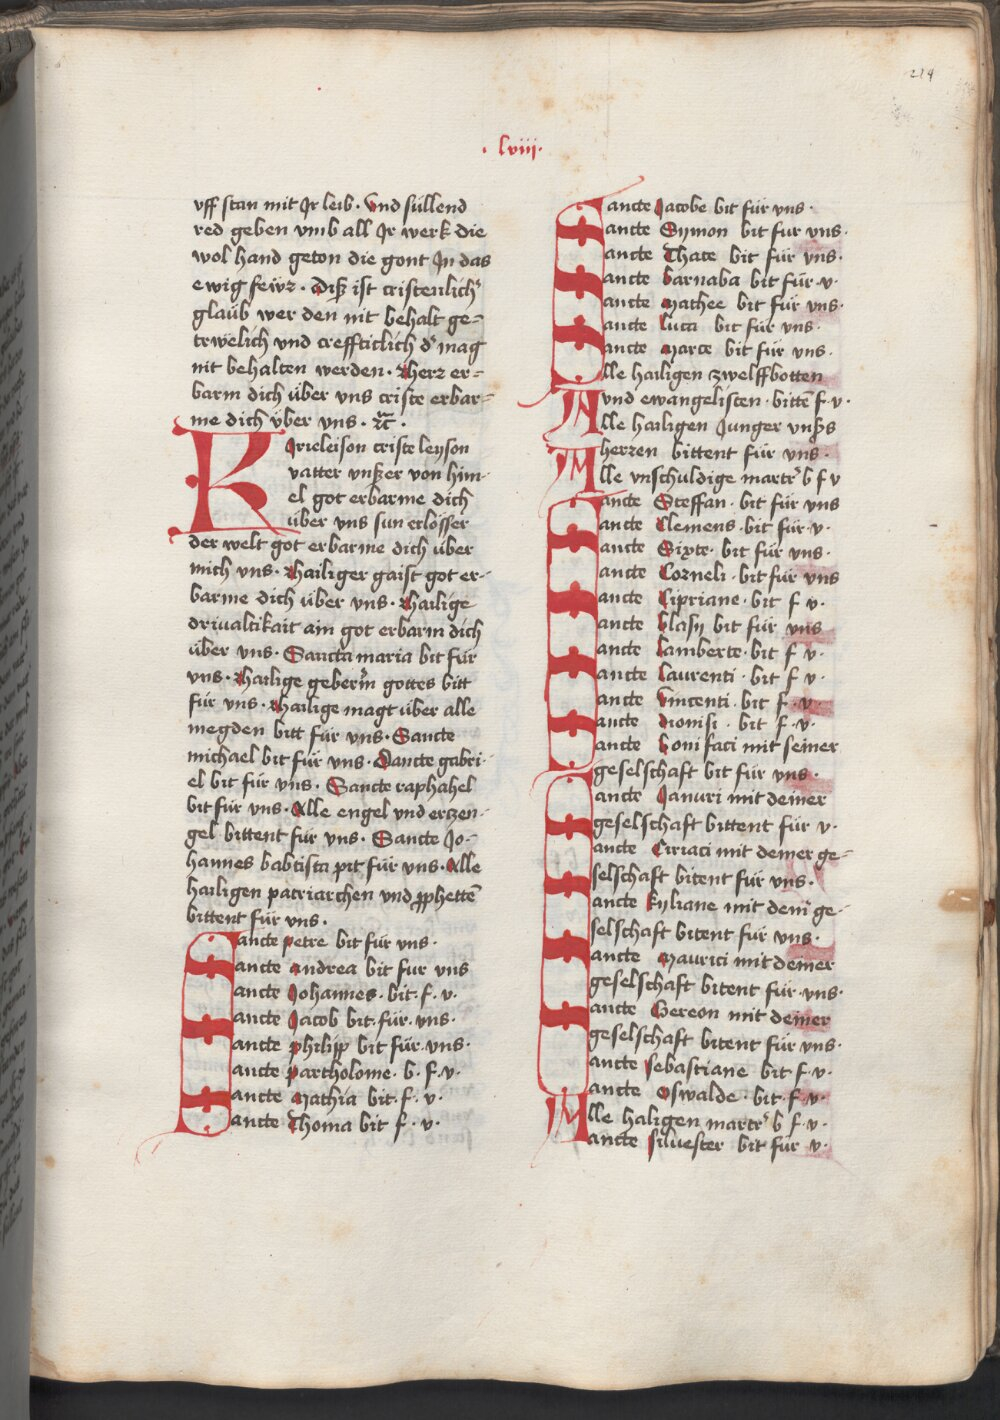 214
· lviii ·
vff stan mit Jr leib · Vnd süllend
red geben vmb all Jr werk die
wol hand geton die gont Jn das
ewig fewr · diß ist cristenlich
glaub wer den nit behalt ge=
trwelich vnd creffticlich d' mag
nit behalten werden · Herr er=
barm dich über vns criste erbar=
me dich über vns · rc ·
Kirieleison criste leyson
vatter vnßer von him-
el got erbarme dich
über vns sun erlösser
der welt got erbarme dich über
mich vns · Hailiger gaist got er-
barme dich über vns · Hailige
drivaltikait ain got erbarm dich
über vns · Sancta maria bit für
vns · Hailige geberin gottes bitt
für vns · Hailige magt über alle
megden bitt für vns · Sancte
michael bit für vns · Sancte gabri-
el bit für vns · Sancte raphahel
bit für vns · Alle engel vnd erczen-
gel bittent für vns · Sancte Jo-
hannes babtista pit für vns · Alle
hailigen patriarchen vnd ꝓphettē
bittent für vns ·
Sancte petre bit für vns ·
ancte andrea bit für vns
ancte Johannes · bit · f · v ·
ancte Jacob bit · für · vns ·
ancte philipp bit für · vns ·
ancte partholome · b · f · v ·
ancte Mathia bit · f · v ·
ancte Thoma bit f · v ·
Sancte Jacobe bit für vns ·
ancte Symon bit für vns ·
ancte Thate bit für vns ·
ancte barnaba bit für · v ·
ancte Mathee bit für vns ·
ancte Luca bit für vns ·
ancte Marce bit für vns ·
Alle hailigen zwelffbotten
vnd ewangelisten · bittē f · v ·
Alle hailigen Junger vnßs
herren bittent für vns ·
Alle vnschuldige martr' b f v
Sancte Steffan · bit für vns
ancte Clemens · bit für · v ·
ancte Sixte · bit für vns ·
ancte Corneli · bit für vns
ancte Cipriane · bit f v ·
ancte blasy bit für vns
ancte Lamberte · bit f v ·
ancte Laurenti · bit f v ·
ancte Vincenti · bit f · v ·
ancte dionisi · bit f · v ·
ancte bonifaci mit seiner
geselschaft bit für vns ·
Sancte Januri mit deiner
geselschaft bittent für v ·
ancte Ciriaci mit deiner ge=
selschaft bitent für vns ·
ancte Kyliane mit deinr ge-
selschaft bitent für vns ·
ancte Maurici mit deiner
geselschaft bitent für · vns ·
ancte Gereon mit deiner
geselschaft bitent für vns ·
ancte Sebastiane bit · f · v ·
ancte Oswalde · bit · f · v ·
Alle haligen martr' b f · v ·
ancte silvester bit für v ·